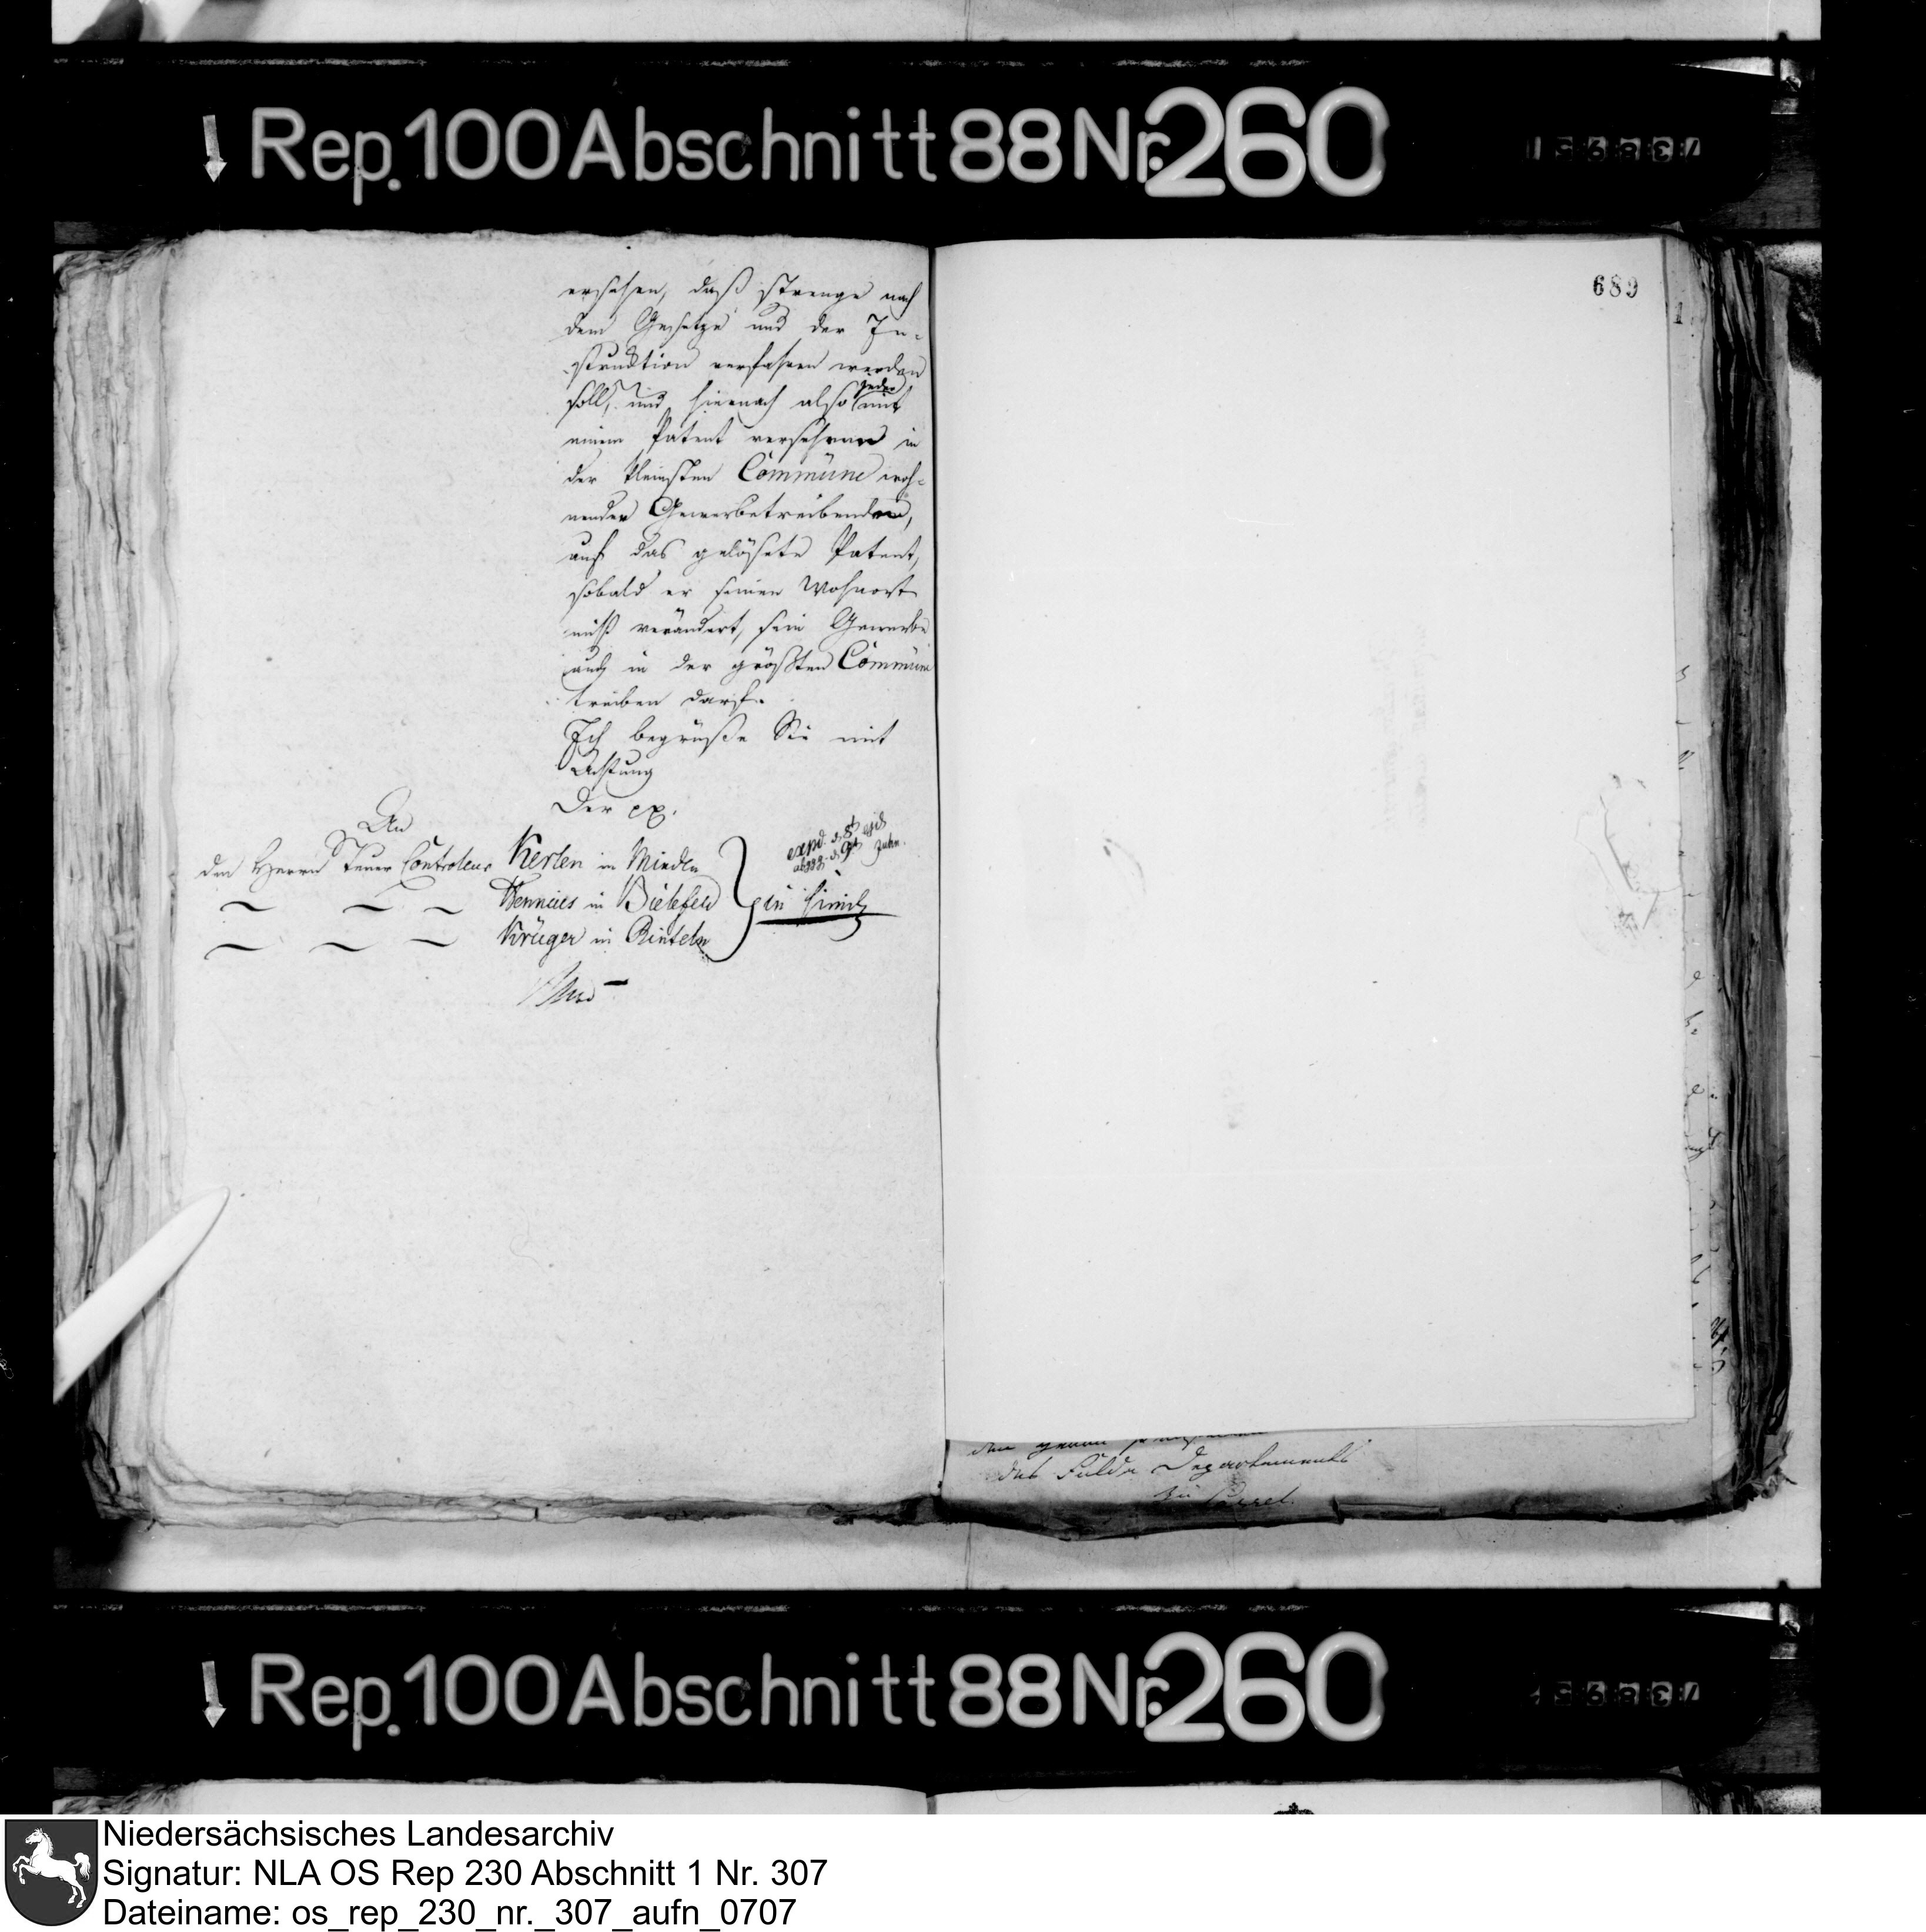 Rep. 100 Abschnitt 88 Nr. 260
689
ersehen, daß strenge nach
dem Gesetze und der In-
struktion verfahren werden
soll, und hiernach also jeder mit
einem Patent versehene in
der kleinsten Commüne woh-
nender Gewerbetreibender,
auf das gelösete Patent,
sobald er seinen Wohnort
nicht verändert, sein Gewerbe
auch in der größten Commüne
treiben darf.
Ich begrüße Sie mit
Achtung
Der
An
den Herrn Steuer Controleur Kerlen in Minden
Wennies in Bielefeld
Krüger in Rinteln
expd. d. 8t
abgg. d. 9t
des Fulda Departements
zu Cassel.
Rep. 100 Abschnitt 88 Nr. 260
Niedersächsisches Landesarchiv
Signatur: NLA OS Rep 230 Abschnitt 1 Nr. 307
Dateiname: os_rep_230_nr._307_aufn_0707